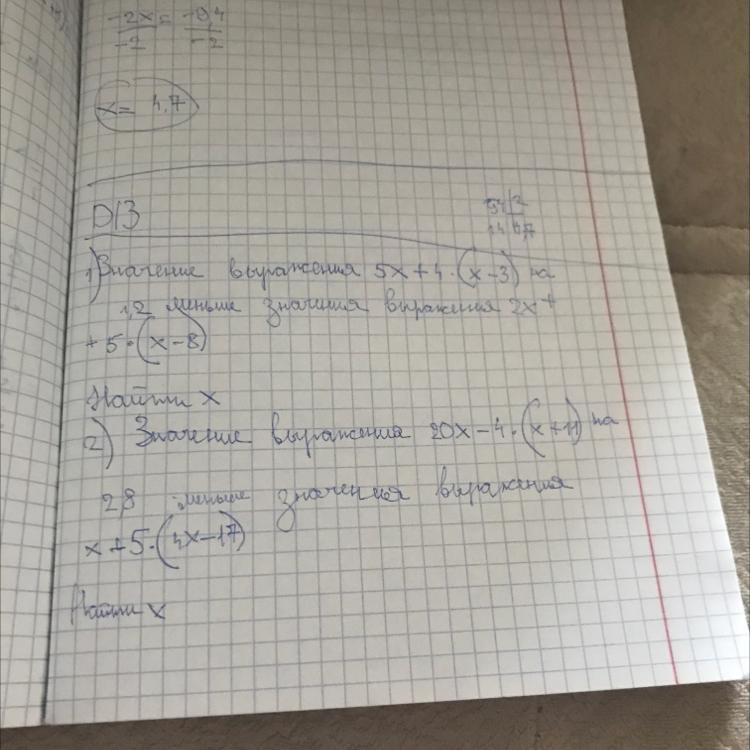 -2x = -9,4
-2 -2
x = 4,7
D/З
54 2
14
1) Значение выражения 5x+4·(x-3) на
1,2 меньше значения выражения 2x+
+5·(x-8)
Найти x
2) Значение выражения 20x-4·(x+11) на
28 меньше значения выражения
x+5·(4x-17)
Найти x